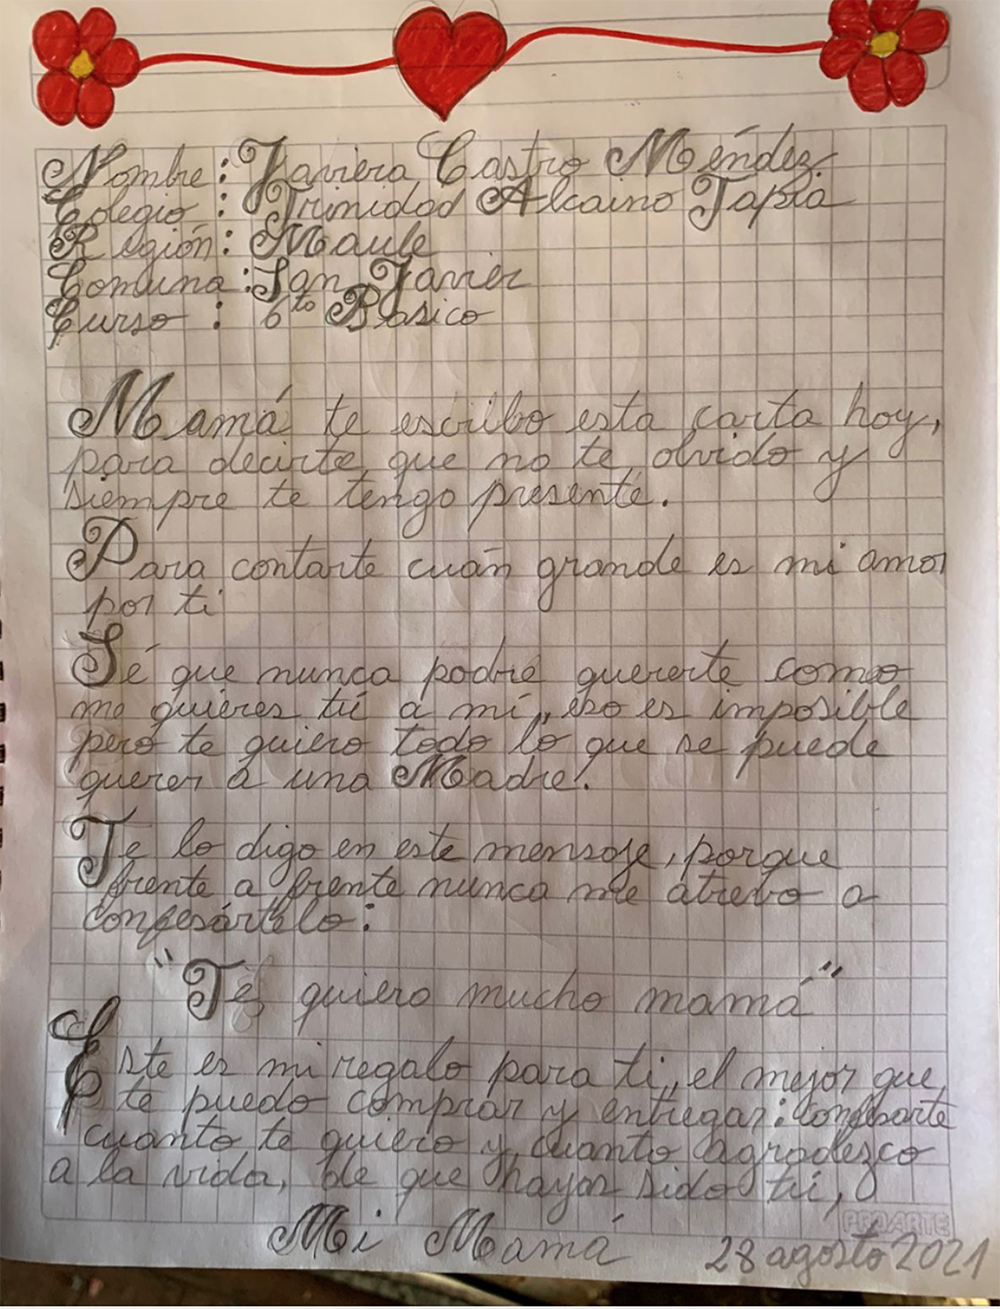 Nombre: Javiera Castro Méndez
Colegio : Trinidad Alcaino Tapia
Región: Maule
Comuna: San Javier
Curso : 6to Básico
Mamá te escribo esta carta hoy,
para decirte, que no te olvido y
siempre te tengo presente.
Para contarte cuán grande es mi amor
por ti
Sé que nunca podré quererte como
me quieres tú a mí, eso es imposible
pero te quiero todo lo que se puede
querer a una Madre.
Te lo digo en este mensaje, porque
frente a frente nunca me atrevo a
confesártelo:
"Te quiero mucho mamá"
Este es mi regalo para ti, el mejor que
te puedo comprar y entregar: confesarte
cuanto te quiero y cuanto agradezco
a la vida, de que hayas sido tú,
Mi Mamá
PROARTE
28 agosto 2021